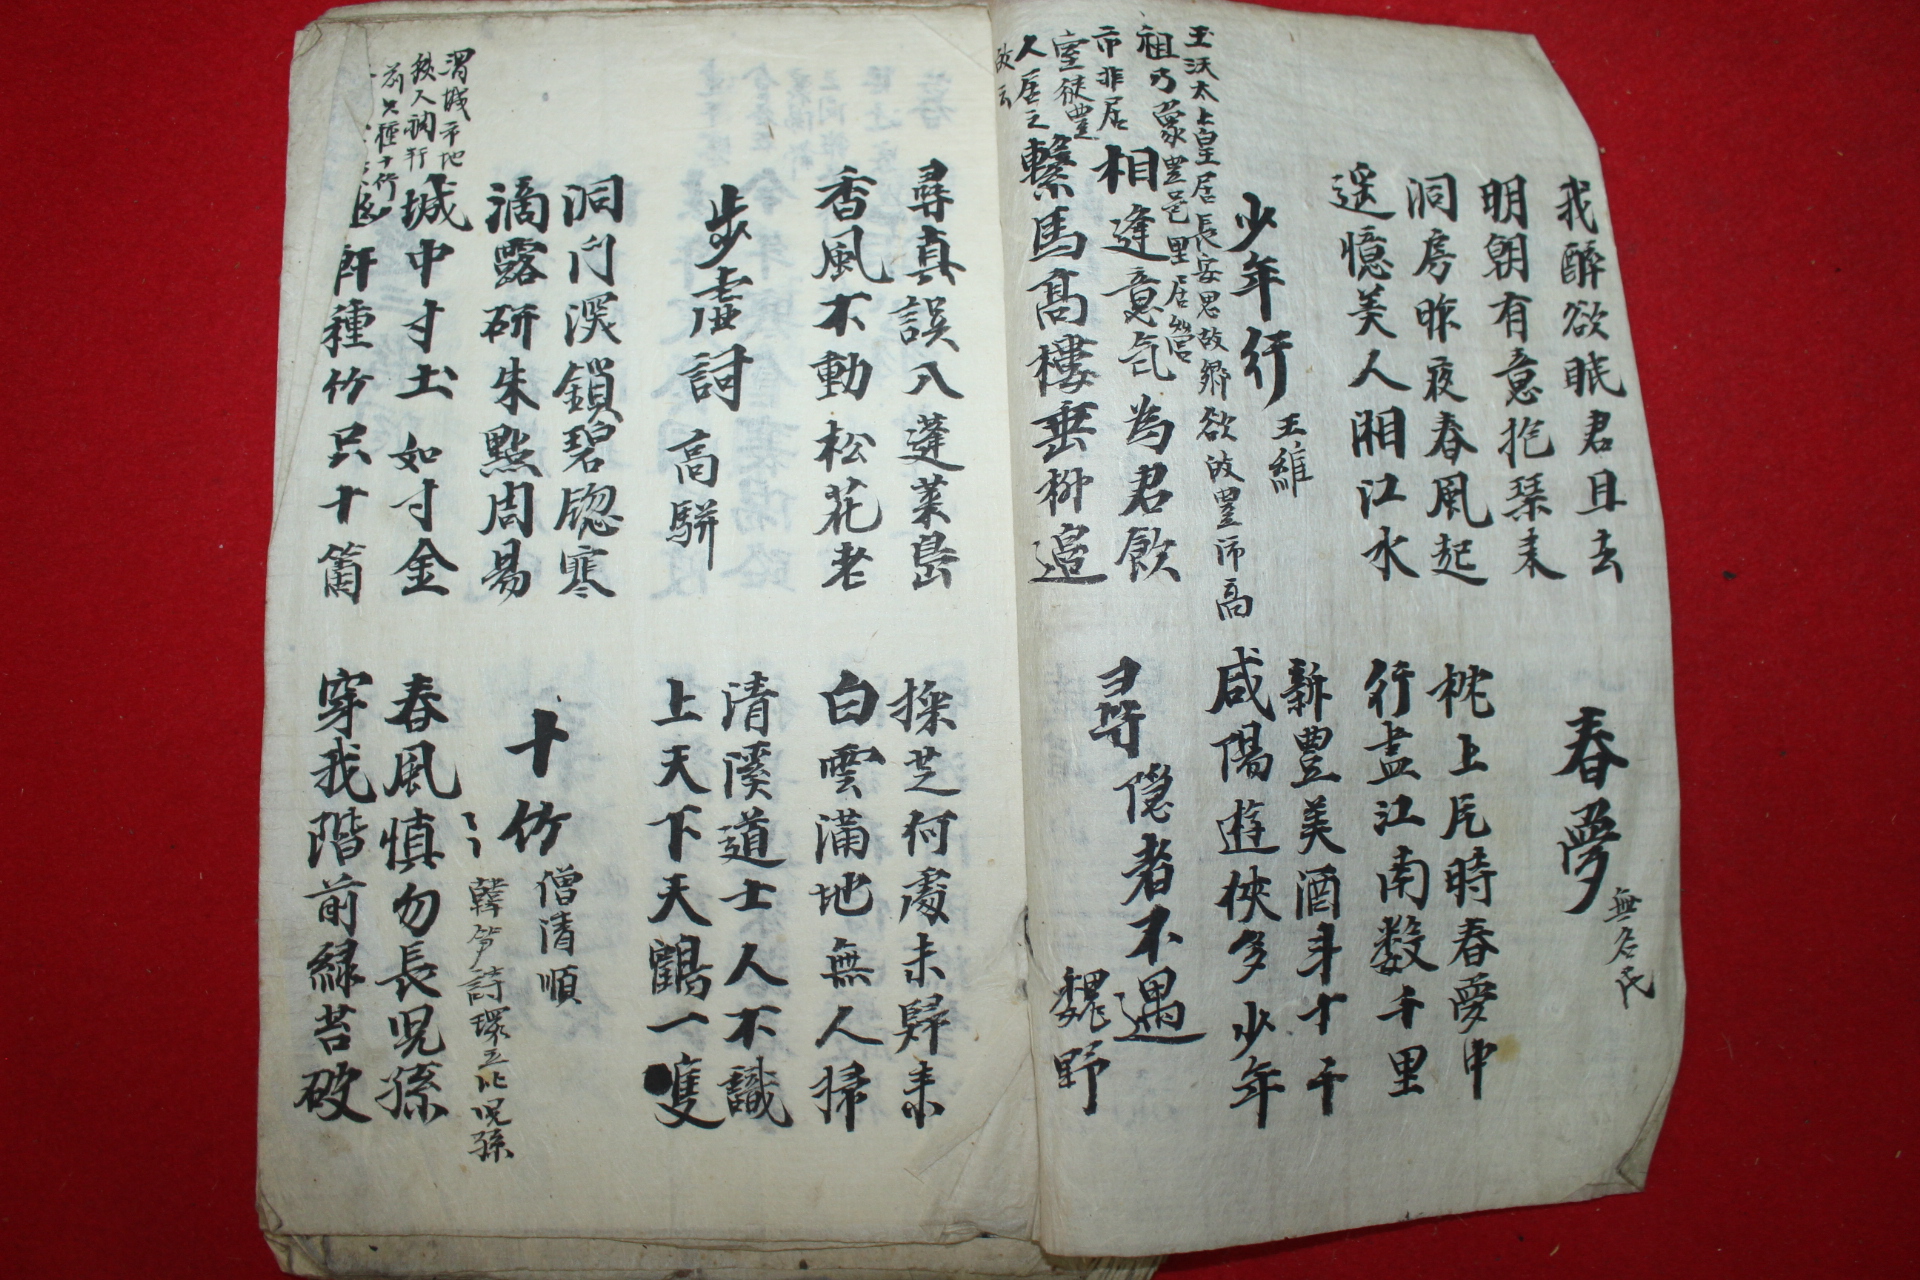 我醉欲眠君且去
明朝有意抱琴来
春夢 無名氏
洞房昨夜春風起
遥憶美人湘江水
枕上片時春夢中
行盡江南数千里
少年行 王維
新豊美酒斗十千
咸陽遊俠多少年
太上皇居長安思故鄉欲故豊沛高
祖乃象豊邑里居營
市非居
室徙豊
人居之
故云
相逢意气為君飲
繫馬高樓垂柳邉
尋隠者不遇
魏野
尋真誤入蓬莱島
香風不動松花老
採芝何處未歸来
白雲満地無人掃
步虚詞 高騈
清溪道士人不識
上天下天鶴一隻
洞門深鎖碧窓寒
滴露研朱點周易
十竹 僧清順
韓笋詩環立比児孫
渭城
城中寸土如寸金
軒種竹只十箇
春風慎勿長児孫
穿我階前緑苔破